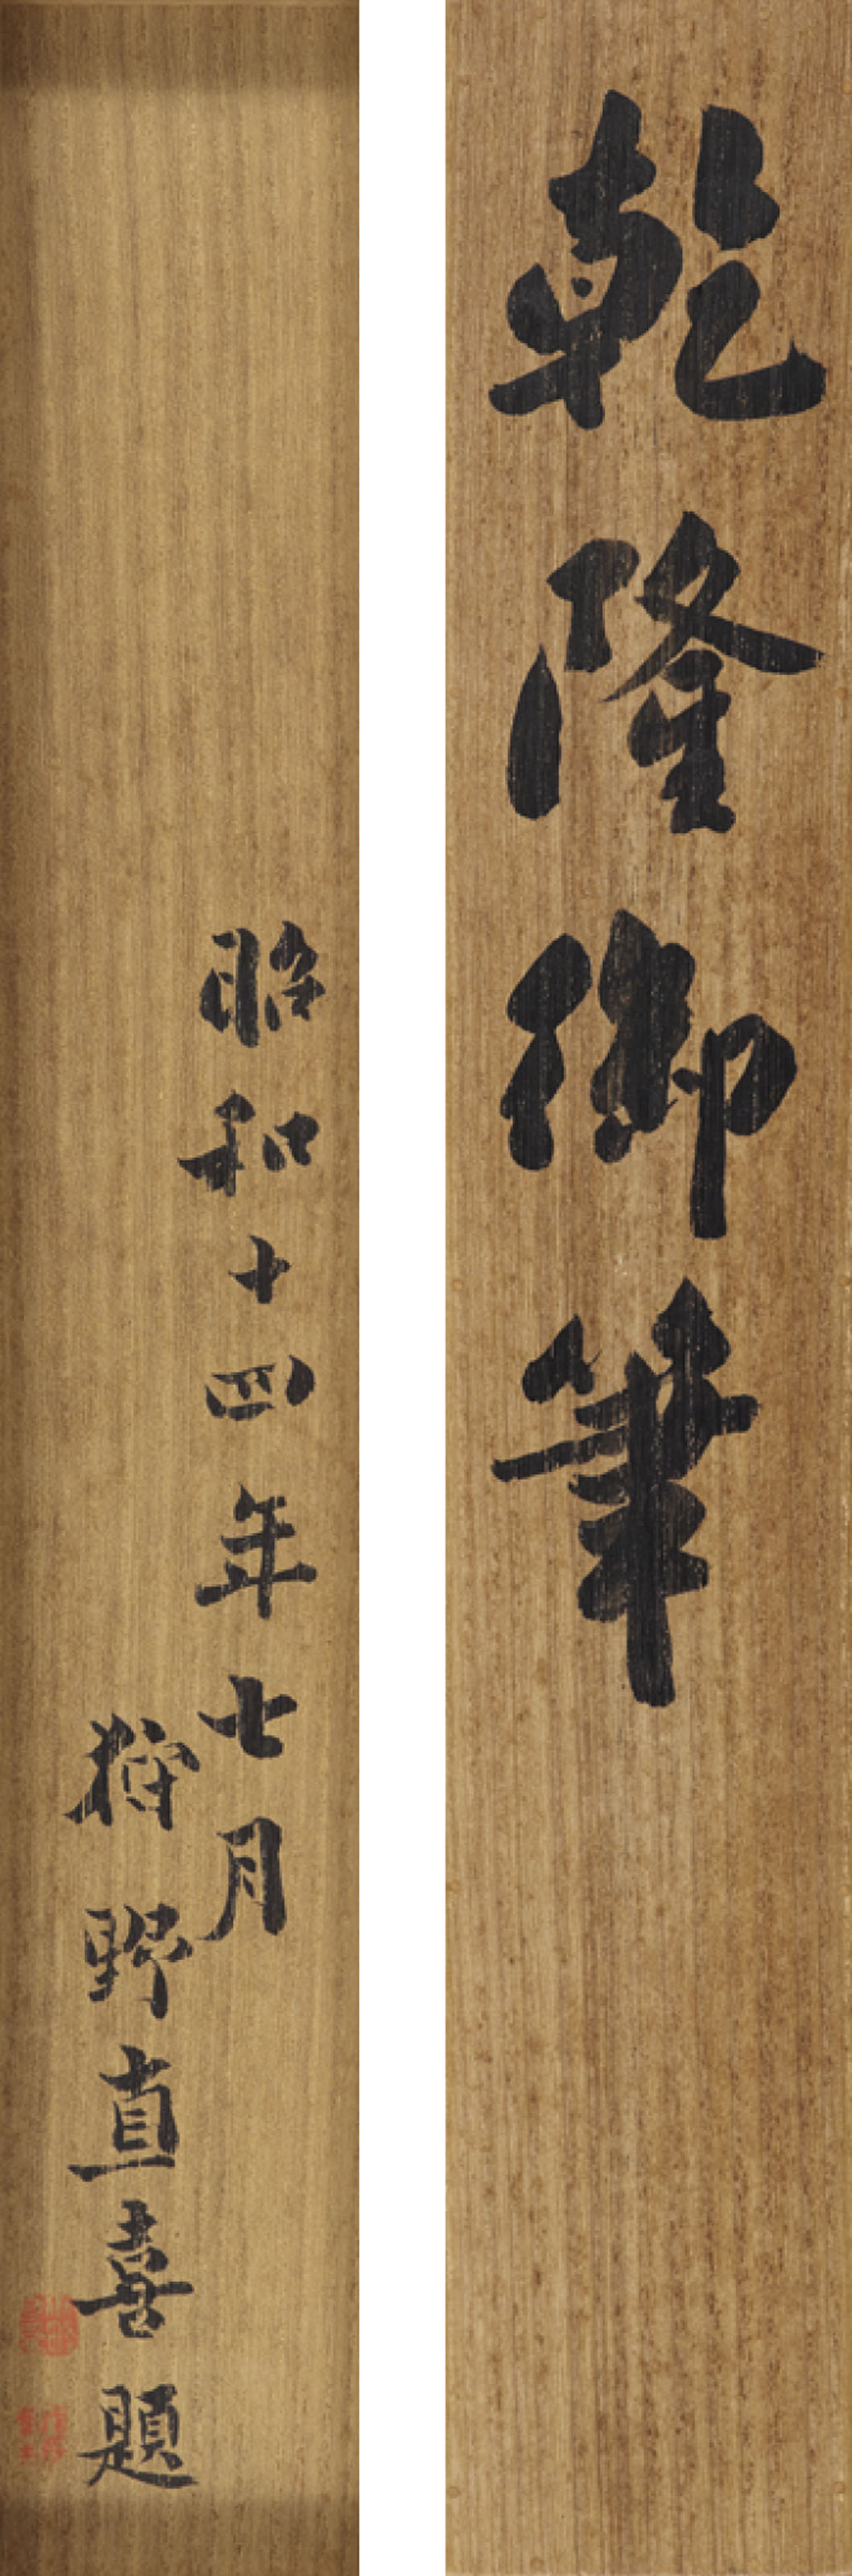 乾隆御筆
昭和十四年七月
狩野直喜題